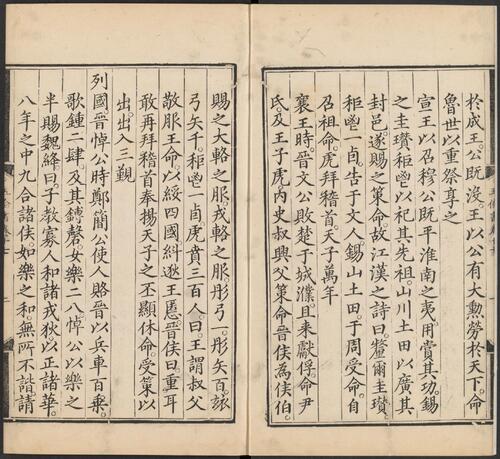 於成王公既沒王以公有大勲勞於天下命
魯世以重祭享之
宣王以召穆公既平淮南之夷用賞其功錫
之圭瓚秬鬯以祀其先祖山川土田以廣其
封邑遂賜之策命故江漢之詩曰釐爾圭瓚
秬鬯一卣告于文人錫山土田于周受命自
召祖命虎拜稽首天子萬年
襄王時晉文公敗楚于城濮且來獻俘命尹
氏及王子虎内史叔興父策命晉侯為侯伯
賜之大輅之服戎輅之服彤弓一彤矢百玈
弓矢千秬鬯一卣虎賁三百人曰王謂叔父
敬服王命以綏四國糾逖王慝晉侯曰重耳
敢再拜稽首奉揚天子之丕顯休命受策以
出出入三覲
列國晉悼公時鄭簡公使人賂晉以兵車百乘
歌鍾二肆及其鎛磬女樂二八悼公以樂之
半賜魏絳曰子教寡人和諸戎狄以正諸華
八年之中九合諸侯如樂之和無所不諧請